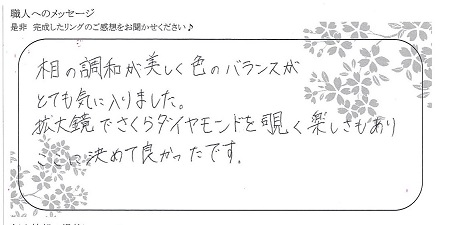 職人へのメッセージ
是非 完成したリングのご感想をお聞かせください♪
相の調和が美しく色のバランスが
とても気に入りました。
拡大鏡でさくらダイヤモンドを覗く楽しさもあり
ここに決めて良かったです。